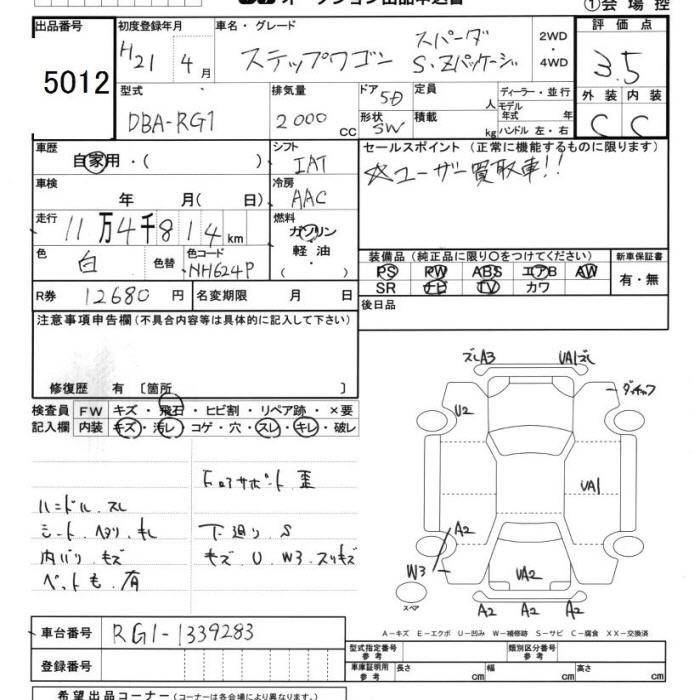 オークション出品申込書 ①会場控
出品番号 初度登録年月 車名・グレード 評価点
5012 H21 4月 ステップワゴン スパーダ S・Zパッケージ 2WD・4WD 3.5
型式 排気量 ドア 定員 ディーラー・並行 外装 内装
DBA-RG1 2000 CC 5D 人 モデル年式 年 C C
形状 積載 SW kg ハンドル 左・右
車歴 シフト セールスポイント(正常に機能するものに限ります)
自家用・( ) IAT ☆ユーザー買取車!!
車検 年 月(日) 冷房 AAC
走行 11万4千814km 燃料 ガソリン
軽油・( )
色 白 色替 色コード NH624P
装備品(純正品に限り○をつけてください) 新車保証書
PS PW ABS エアB AW 有・無
SR ナビ TV カワ
R券 12680円 名変期限 月 日 後日品
注意事項申告欄(不具合内容等は具体的に記入して下さい)
修復歴 有 [箇所 ]
検査員 FW キズ・飛石・ヒビ割・リペア跡・×要
記入欄 内装 キズ・汚レ・コゲ・穴・スレ・キレ・破レ
ズレA3 UA1ズレ
U2
UA1
A2
W3
UA2
A2 A2 A2
スペア
ハンドル スレ
シート ヘタリ キレ
内バリ キズ
ペット毛 有
下廻り S
キズ U W3 スリキズ
A-キズ E-エクボ U-凹み W-補修跡 S-サビ C-腐食 XX-交換済
車台番号 RG1-1339283
登録番号
型式指定番号 参考 類別区分番号 参考
車庫証明用 参考 長さ cm 幅 cm 高さ cm
希望出品コーナー(コーナーは各会場により異なります。)